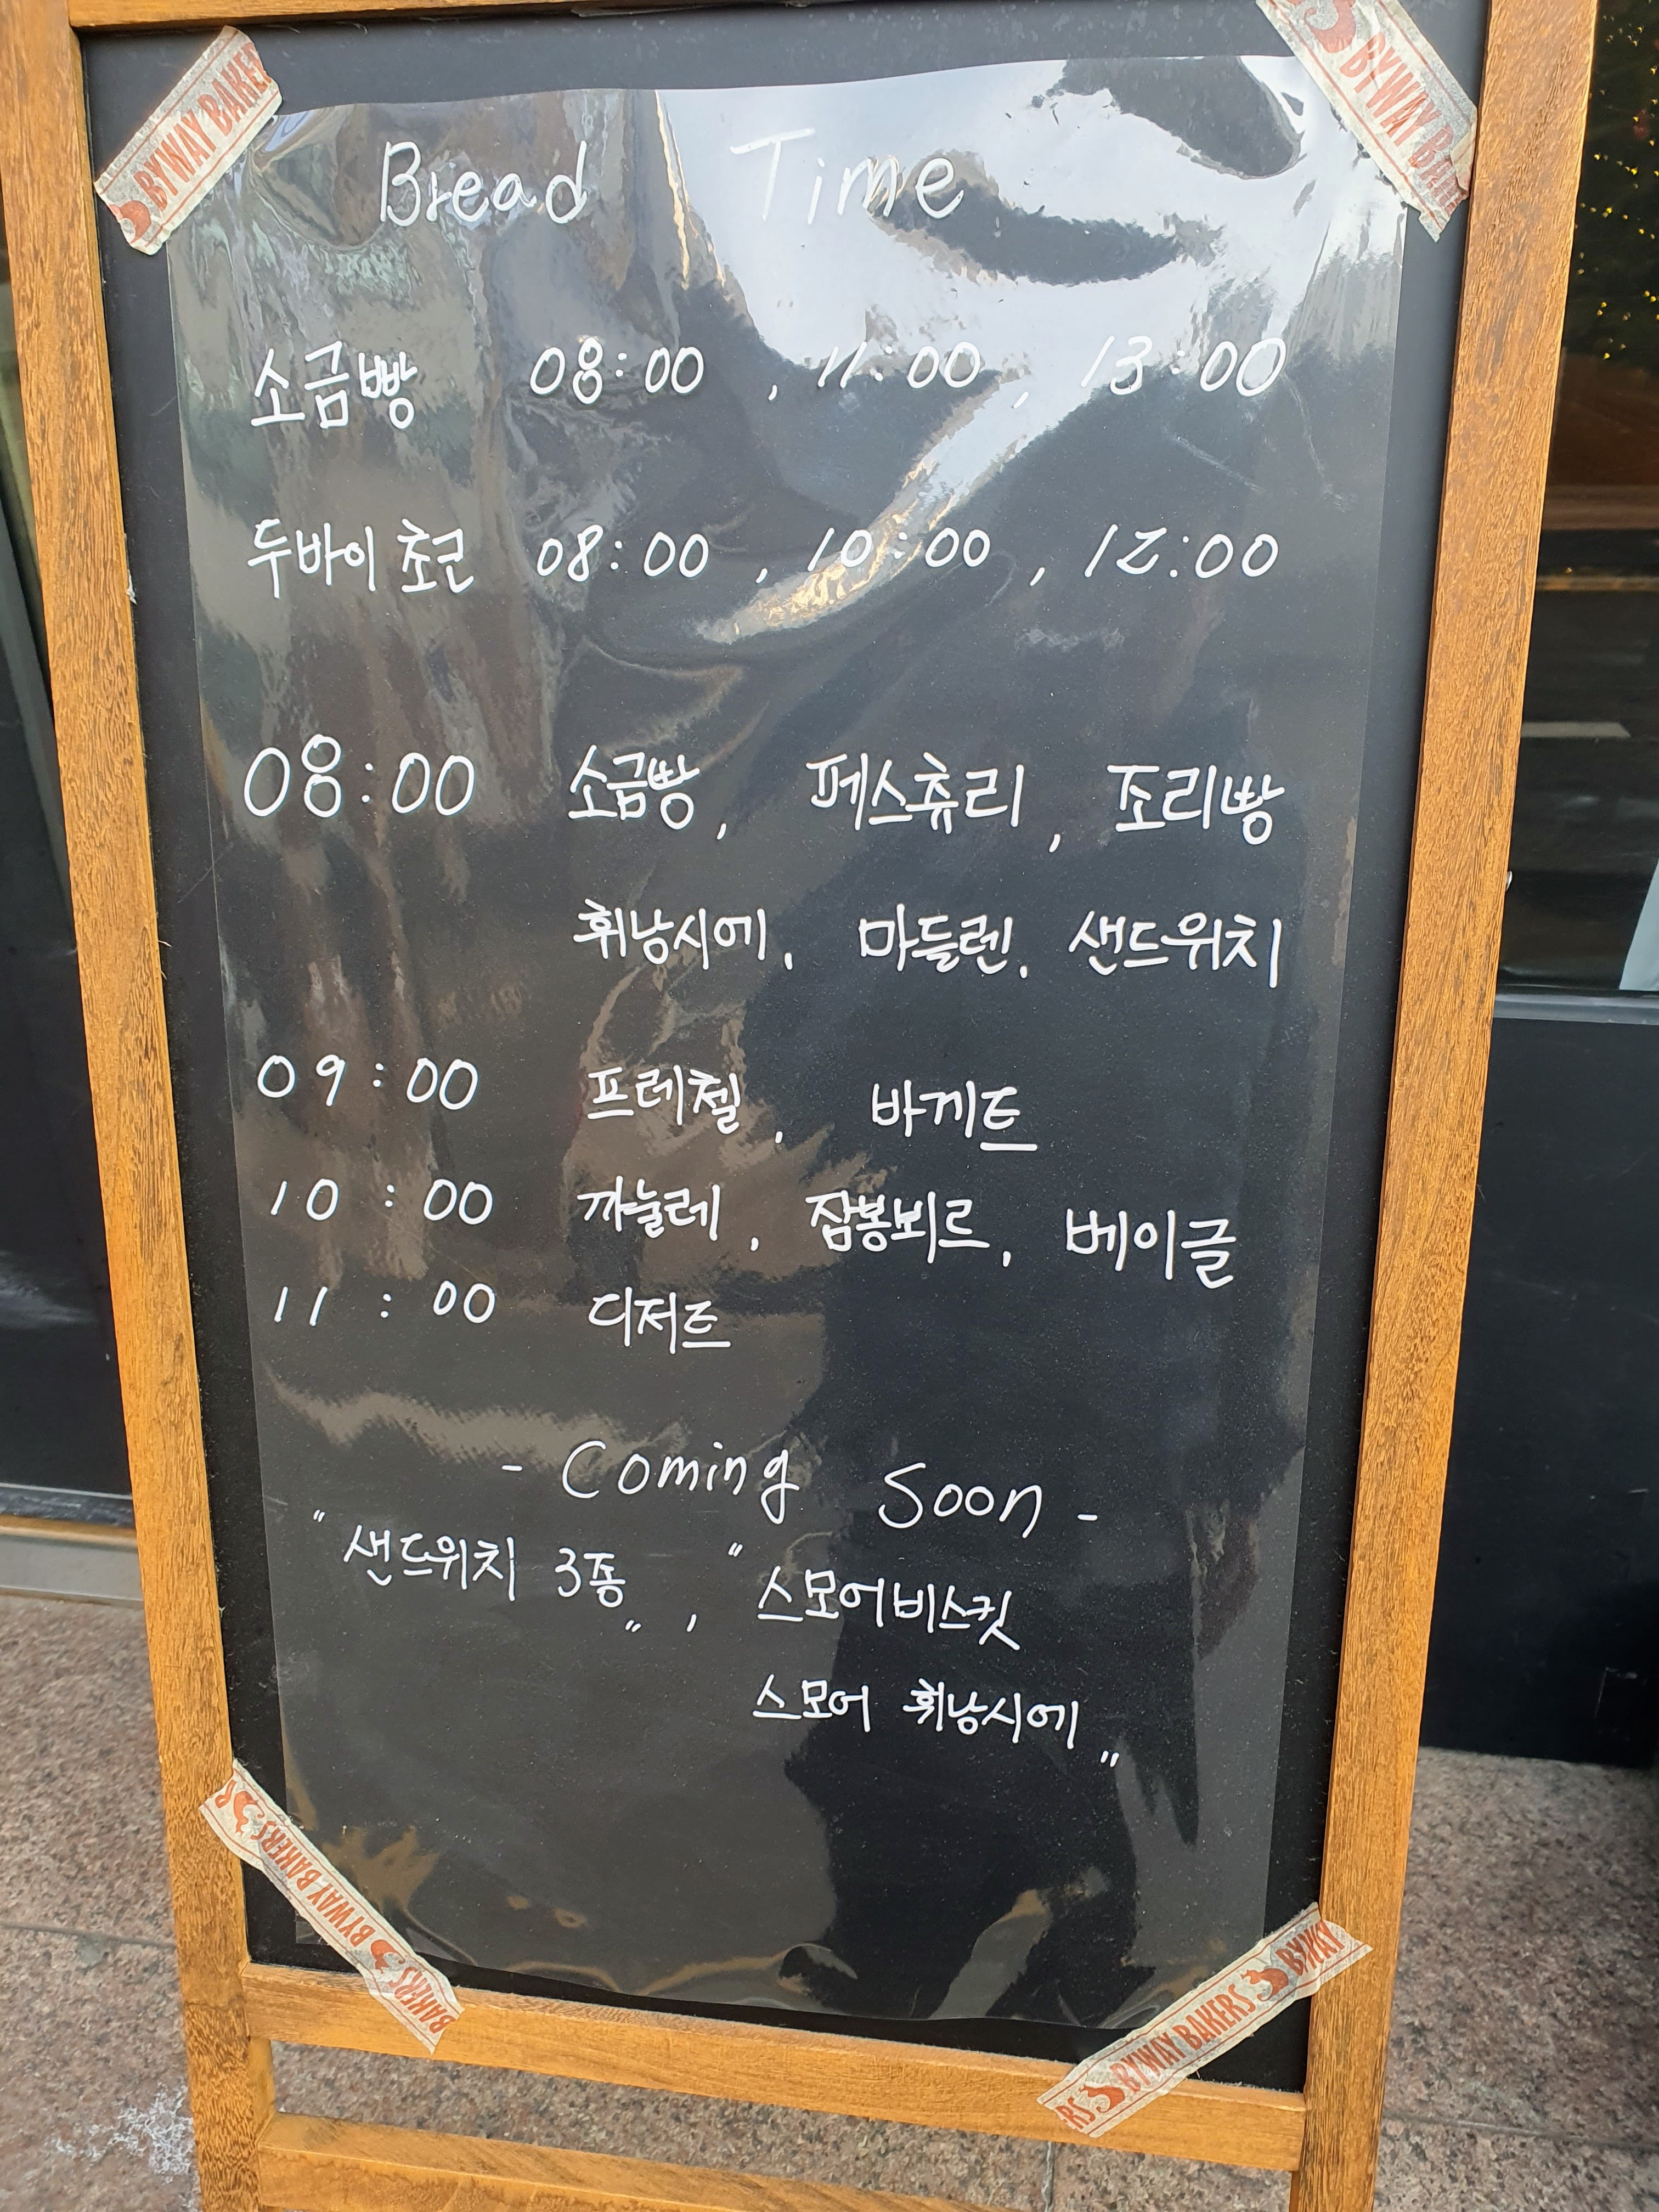 BYWAY BAKER
BYWAY BAKE
Bread Time
소금빵 08:00 , 11:00 , 13:00
두바이 초코 08:00 , 10:00 , 12:00
08:00 소금빵, 페스츄리, 조리빵
휘낭시에, 마들렌, 샌드위치
09:00 프레첼, 바게트
10:00 까눌레, 잠봉뵈르, 베이글
11:00 디저트
- Coming Soon -
"샌드위치 3종", "스모어비스킷
스모어 휘낭시에"
BAKERS BYWAY BAKERS
RS BYWAY BAKERS BYWAY